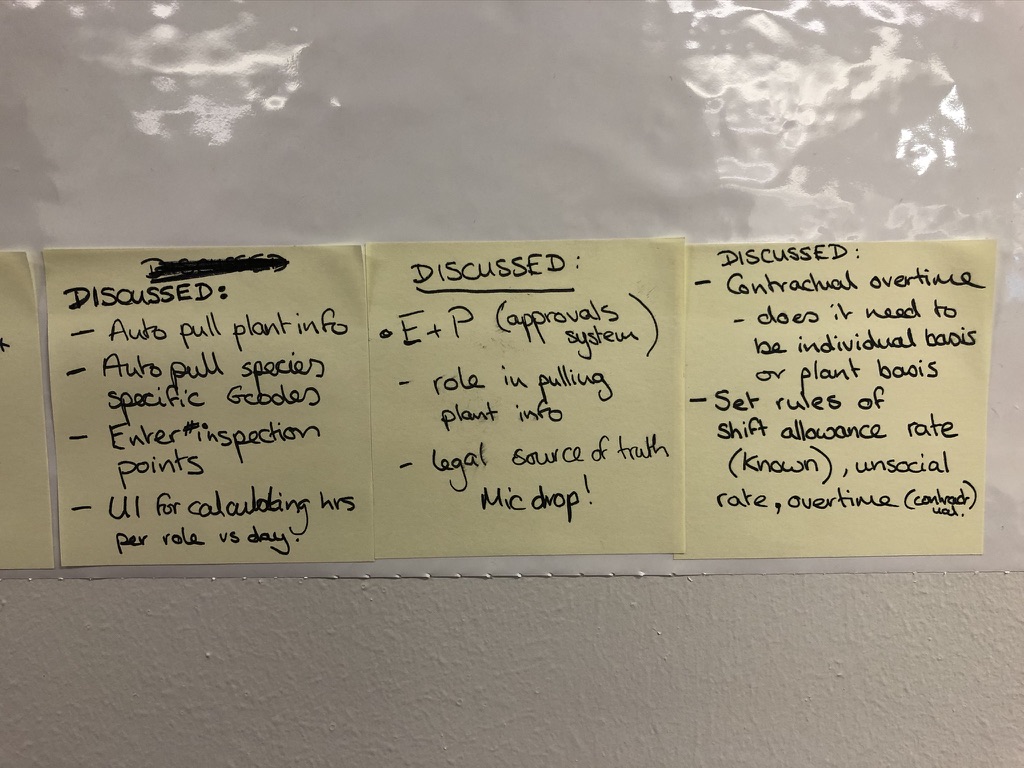 DISCUSSED:
- Auto pull plant info
- Auto pull species
specific Gcodes
- Enter # inspection
points
- UI for calculating hrs
per role vs day!
DISCUSSED:
• E + P (approvals
system)
- role in pulling
plant info
- legal source of truth
Mic drop!
DISCUSSED:
- Contractual overtime
- does it need to
be individual basis
or plant basis
- Set rules of
shift allowance rate
(known), unsocial
rate, overtime (contract
ual.)